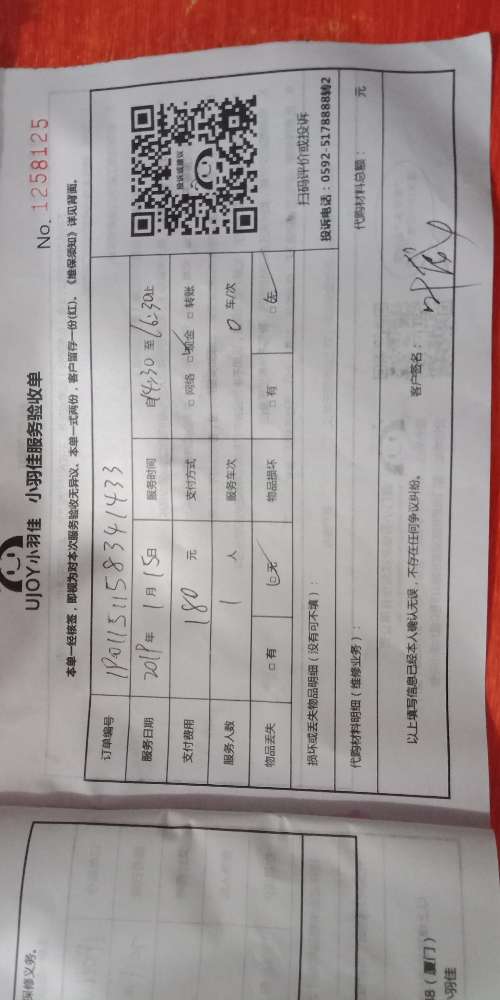 UJOY小羽佳 小羽佳服务验收单
No. 1258125
本单一经核签，即视为对本次服务验收无异议。本单一式两份，客户留存一份(红)。《维保须知》详见背面。
订单编号 190115115834 1433
服务日期 2019年 1月 15日 服务时间 自14:30至16:30止
支付费用 180 元 支付方式 □网络 □现金 □转账
服务人数 1 人 服务车次 0 车/次
物品丢失 □有 □无 物品损坏 □有 □无
投诉或建议
扫码评价或投诉
投诉电话：0592-5178888转2
损坏或丢失物品明细（没有可不填）：
代购材料明细（维修业务）： 代购材料总额： 元
以上填写信息已经本人确认无误，不存在任何争议纠纷。 客户签名：
保修义务。
8（厦门）
羽佳